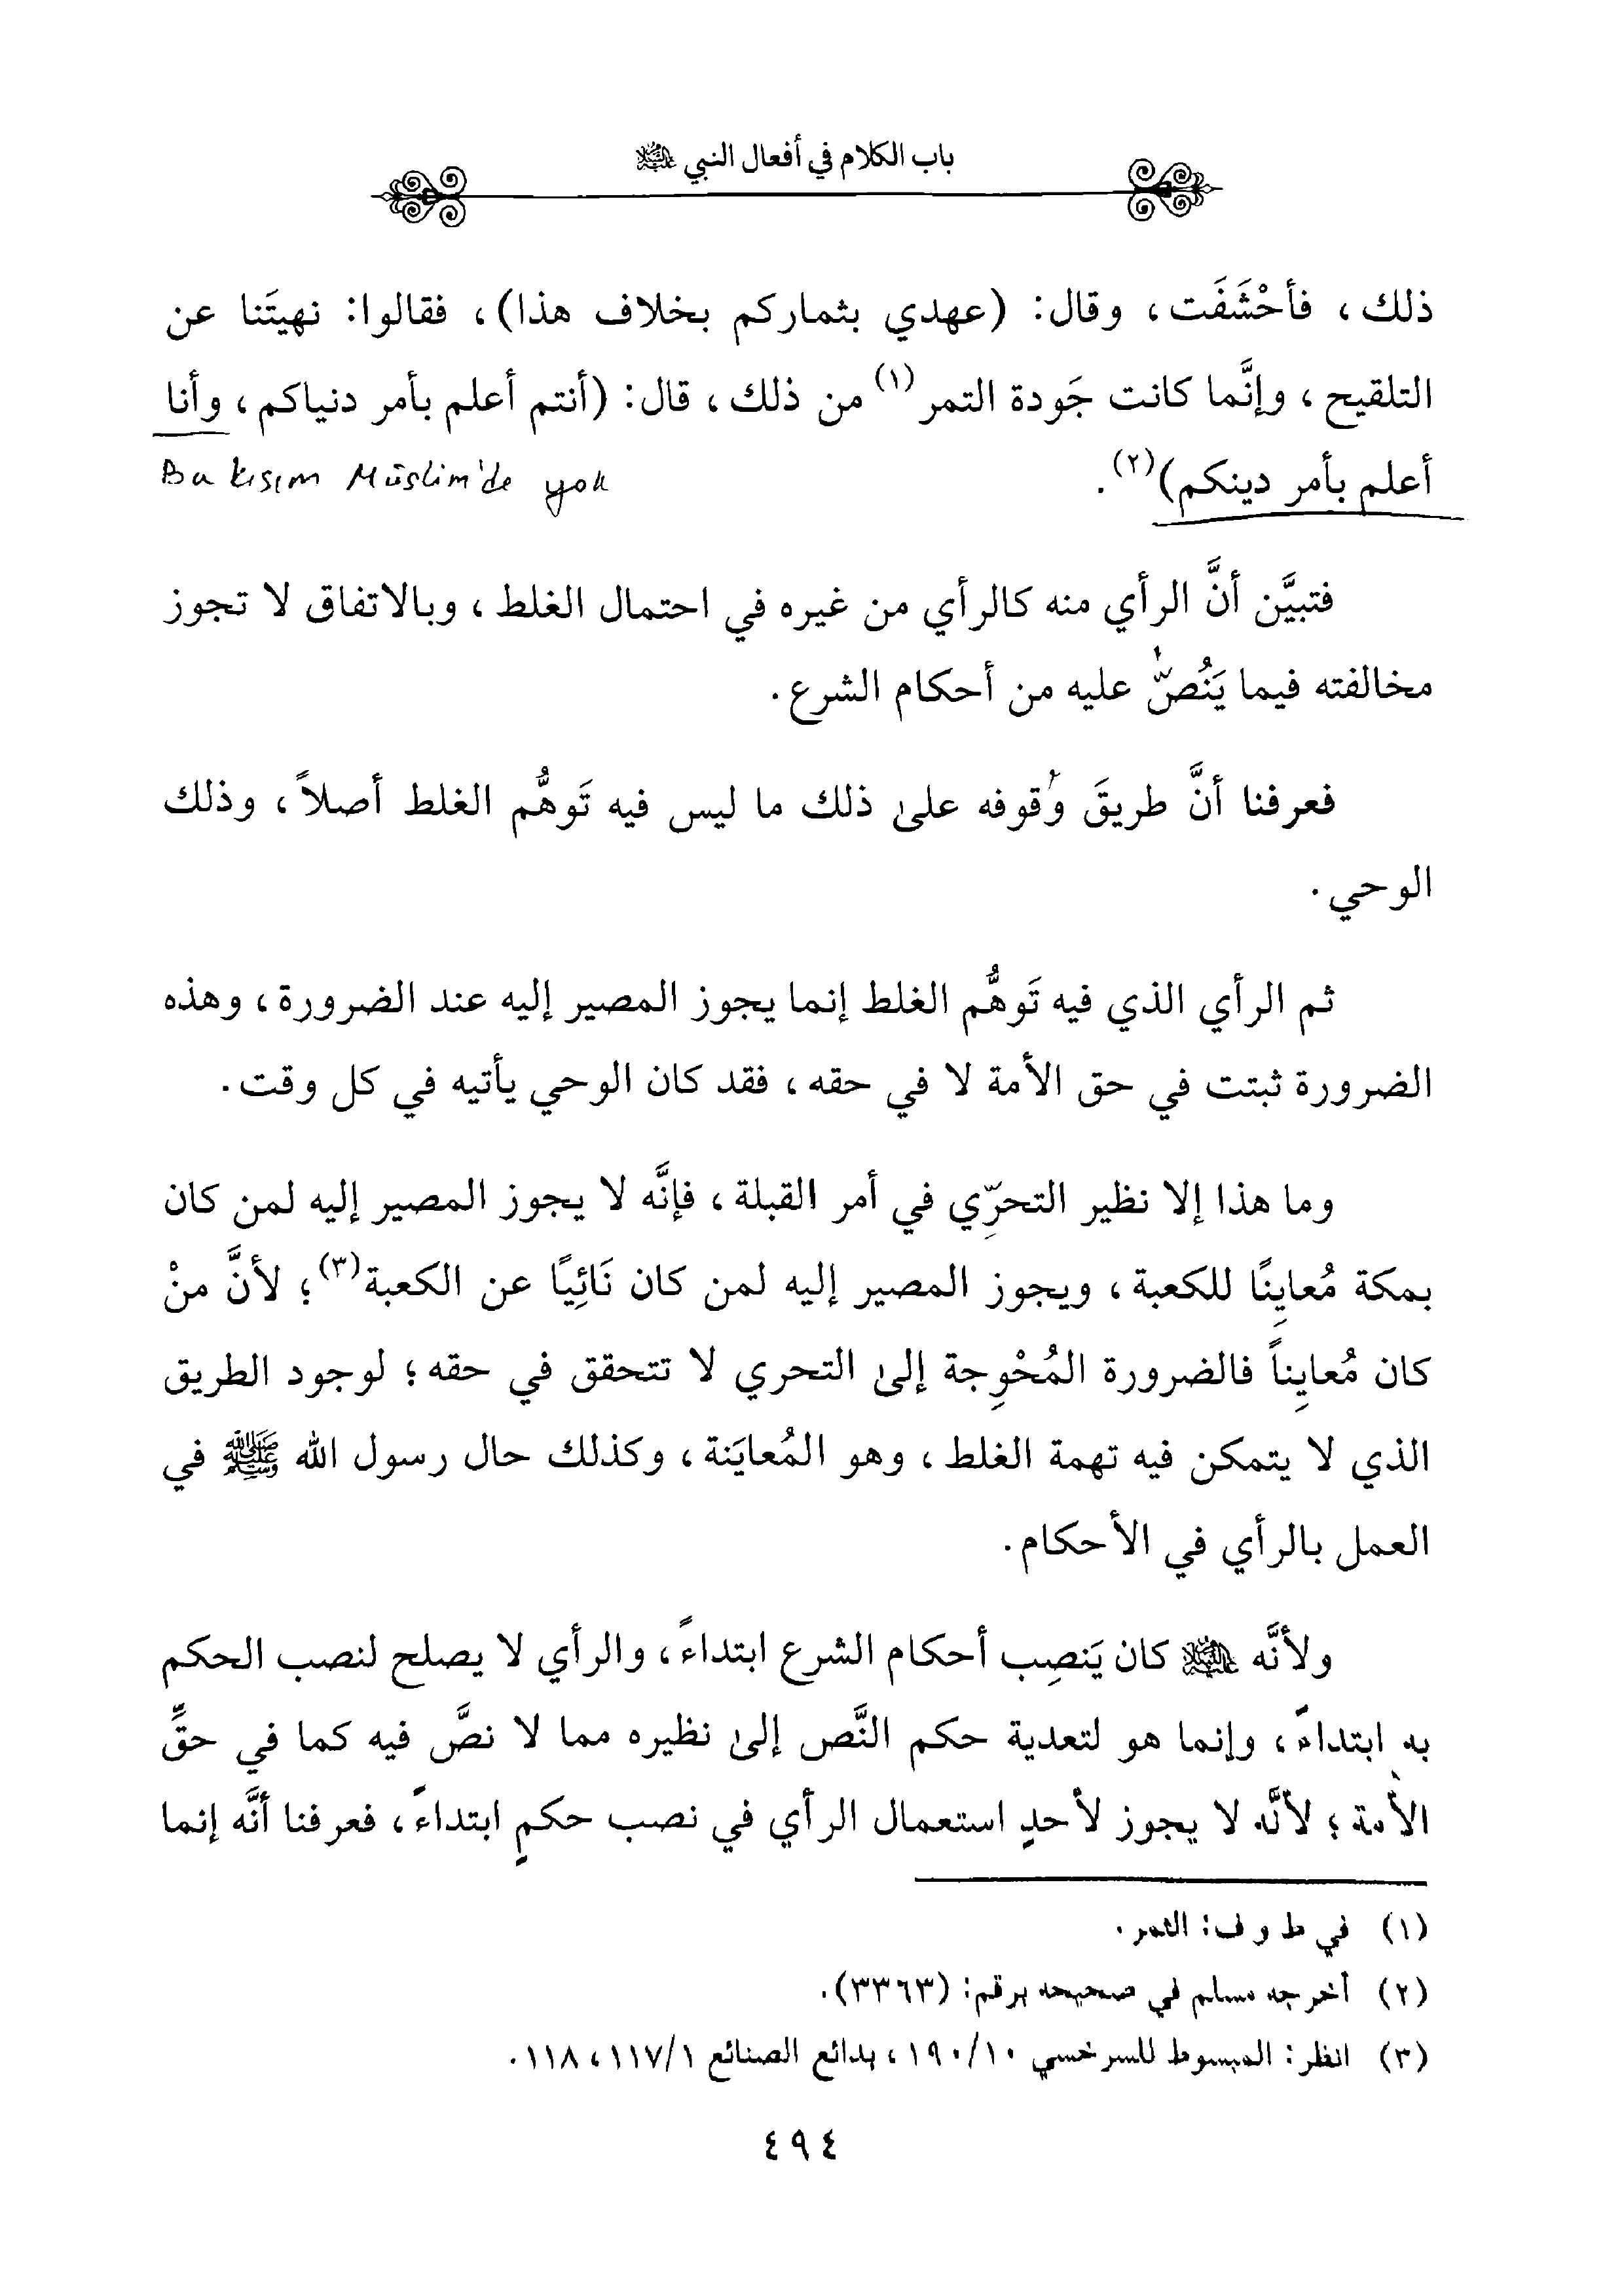 باب الكلام في أفعال النبي ﷺ
ذلك، فأحْشَفَت، وقال: (عهدي بثماركم بخلاف هذا)، فقالوا: نهيتَنا عن
التلقيح، وإنَّما كانت جَودة التمر(١) من ذلك، قال: (أنتم أعلم بأمر دنياكم، وأنا
أعلم بأمر دينكم)(٢).
Bu kısım Müslim'de yok
فتبيَّن أنَّ الرأي منه كالرأي من غيره في احتمال الغلط، وبالاتفاق لا تجوز
مخالفته فيما يَنُصُّ عليه من أحكام الشرع.
فعرفنا أنَّ طريقَ وُقوفه على ذلك ما ليس فيه تَوهُّم الغلط أصلاً، وذلك
الوحي.
ثم الرأي الذي فيه تَوهُّم الغلط إنما يجوز المصير إليه عند الضرورة، وهذه
الضرورة ثبتت في حق الأمة لا في حقه، فقد كان الوحي يأتيه في كل وقت.
وما هذا إلا نظير التحرّي في أمر القبلة، فإنَّه لا يجوز المصير إليه لمن كان
بمكة مُعاينًا للكعبة، ويجوز المصير إليه لمن كان نَائِيًا عن الكعبة(٣)؛ لأنَّ منْ
كان مُعاينِاً فالضرورة المُحْوِجة إلى التحري لا تتحقق في حقه؛ لوجود الطريق
الذي لا يتمكن فيه تهمة الغلط، وهو المُعاينَة، وكذلك حال رسول الله ﷺ في
العمل بالرأي في الأحكام.
ولأنَّه ﷺ كان يَنصِب أحكام الشرع ابتداءً، والرأي لا يصلح لنصب الحكم
به ابتداءً، وإنما هو لتعدية حكم النَّص إلى نظيره مما لا نصَّ فيه كما في حقِّ
الأمة؛ لأنَّه لا يجوز لأحدٍ استعمال الرأي في نصب حكمٍ ابتداءً، فعرفنا أنَّه إنما
(١) في ط و ف: الثمر.
(٢) أخرجه مسلم في صحيحه برقم: (٣٣٦٣).
(٣) انظر: المبسوط للسرخسي ١٩٠/١٠، بدائع الصنائع ١١٧/١، ١١٨.
٤٩٤